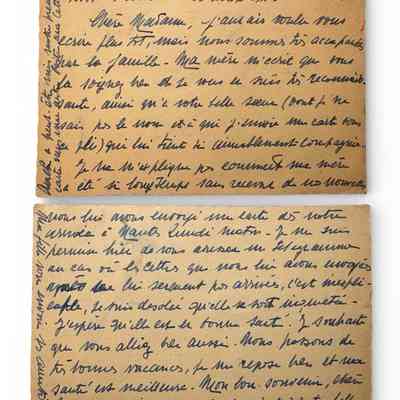 Chère Madame, j'aurais voulu vous
écrire plus tôt, mais nous sommes très accaparés
par la famille. Ma mère m'écrit que vous
la soignez bien et je vous en suis très reconnais-
sante, ainsi qu'à votre belle sœur (dont je ne
sais pas le nom et à qui j'envoie une carte sous
ce pli) qui lui tient si aimablement compagnie.
Je ne m'explique pas comment ma mère
a été si longtemps sans recevoir de nos nouvelles
nous lui avons envoyé une carte dès notre
arrivée à Nantes Lundi matin. Je me suis
permise hier de vous adresser un télégramme
au cas où les lettres que nous lui avons envoyées
ne lui seraient pas arrivées, c'est inexpli-
cable, je suis désolée qu'elle se soit inquiétée.
J'espère qu'elle est en bonne santé. Je souhaite
que vous alliez bien aussi. Nous passons de
très bonnes vacances, je me repose bien et ma
santé est meilleure. Mon bon souvenir, chère